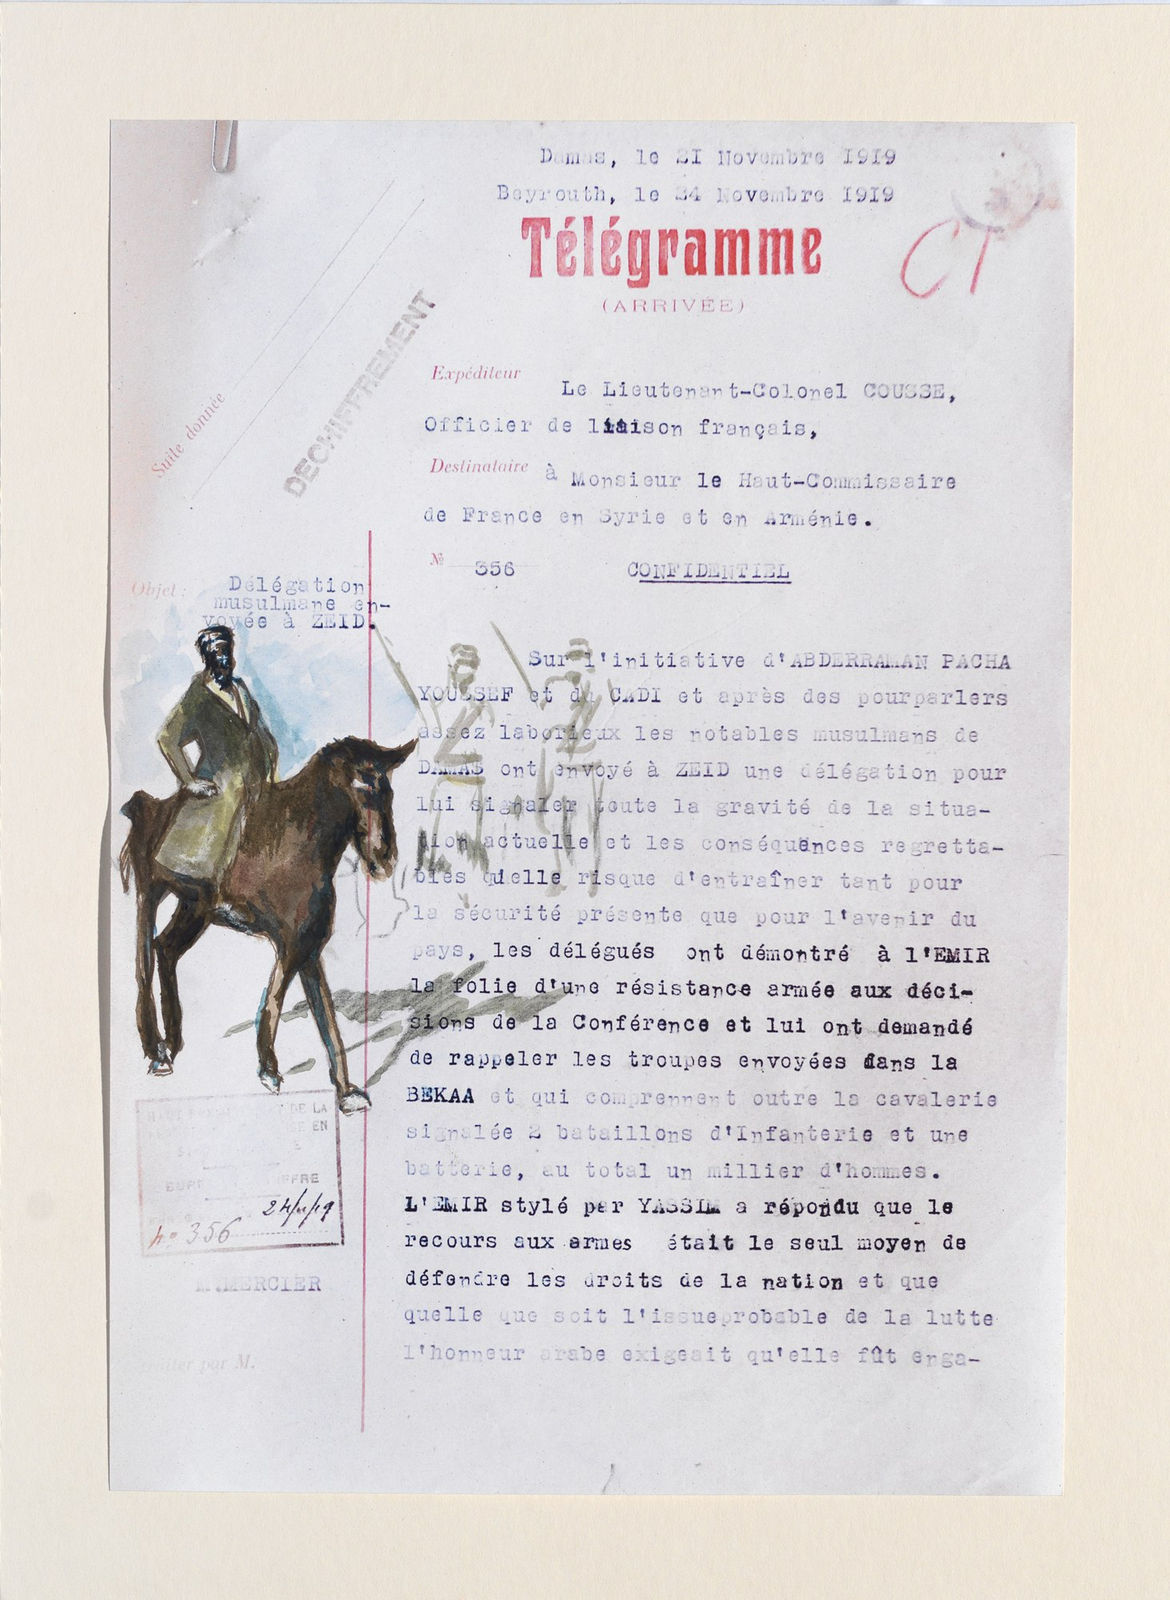 Damas, le 21 Novembre 1919
Beyrouth, le 24 Novembre 1919
Télégramme
(ARRIVÉE)
C1
DECHIFFREMENT
Suite donnée
Expéditeur
Le Lieutenant-Colonel COUSSE,
Officier de liaison français,
Destinataire
à Monsieur le Haut-Commissaire
de France en Syrie et en Arménie.
№ 356 CONFIDENTIEL
Objet : Délégation
musulmane en-
voyée à ZEID.
Sur l'initiative d'ABDERRAMAN PACHA
YOUSSEF et du CADI et après des pourparlers
assez laborieux les notables musulmans de
DAMAS ont envoyé à ZEID une délégation pour
lui signaler toute la gravité de la situa-
tion actuelle et les conséquances regretta-
bles qu'elle risque d'entraîner tant pour
la sécurité présente que pour l'avenir du
pays, les délégués ont démontré à l'EMIR
la folie d'une résistance armée aux déci-
sions de la Conférence et lui ont demandé
de rappeler les troupes envoyées dans la
BEKAA et qui comprennent outre la cavalerie
signalée 2 bataillons d'Infanterie et une
batterie, au total un millier d'hommes.
L'EMIR stylé par YASSIM a répondu que le
recours aux armes était le seul moyen de
défendre les droits de la nation et que
quelle que soit l'issueprobable de la lutte
l'honneur arabe exigeait qu'elle fût enga-
DE LA
EN
24/11/19
n° 356
MERCIER
par M.